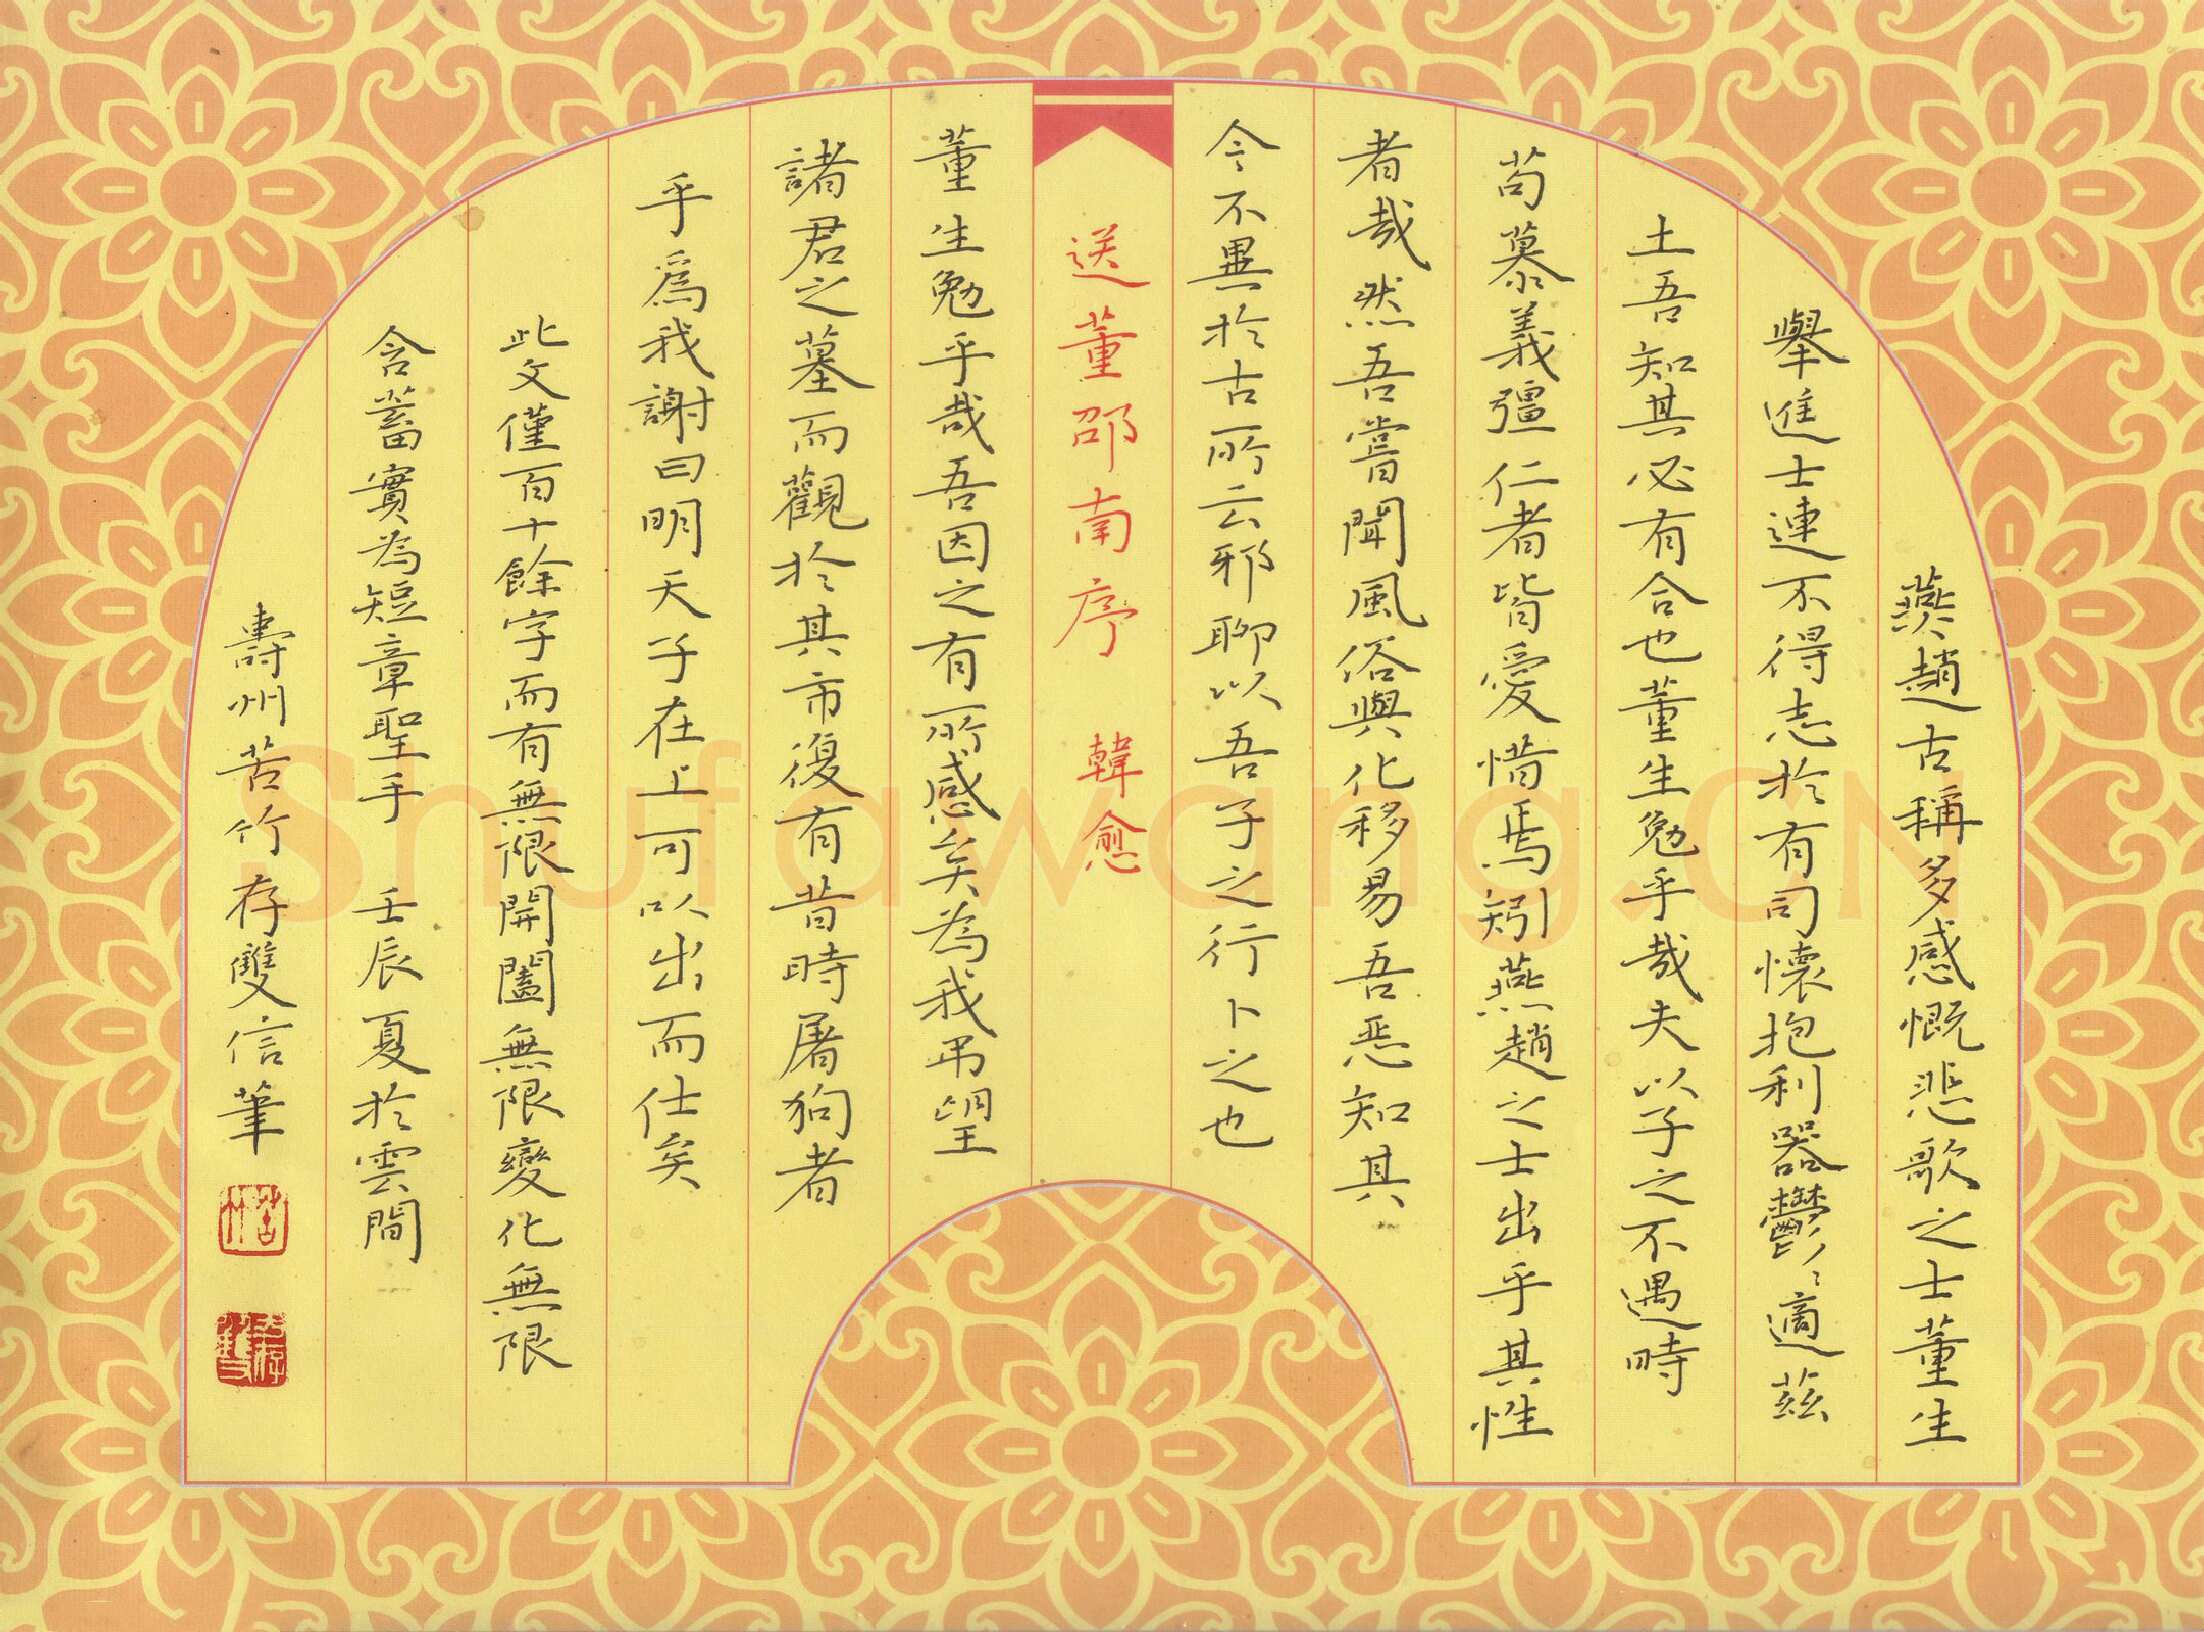 燕趙古稱多感慨悲歌之士董生
舉進士連不得志於有司懷抱利器鬱〻適茲
土吾知其必有合也董生勉乎哉夫以子之不遇時
苟慕義彊仁者皆愛惜焉矧燕趙之士出乎其性
者哉然吾嘗聞風俗與化移易吾惡知其
今不異於古所云邪聊以吾子之行卜之也
送董邵南序 韓愈
董生勉乎哉吾因之有所感矣為我弔望
諸君之墓而觀於其市復有昔時屠狗者
乎為我謝曰明天子在上可以出而仕矣
此文僅百十餘字而有無限開闔無限變化無限
含蓄實為短章聖手 壬辰夏於雲間
壽州苦竹存雙信筆
苦竹
Shufawang.CN